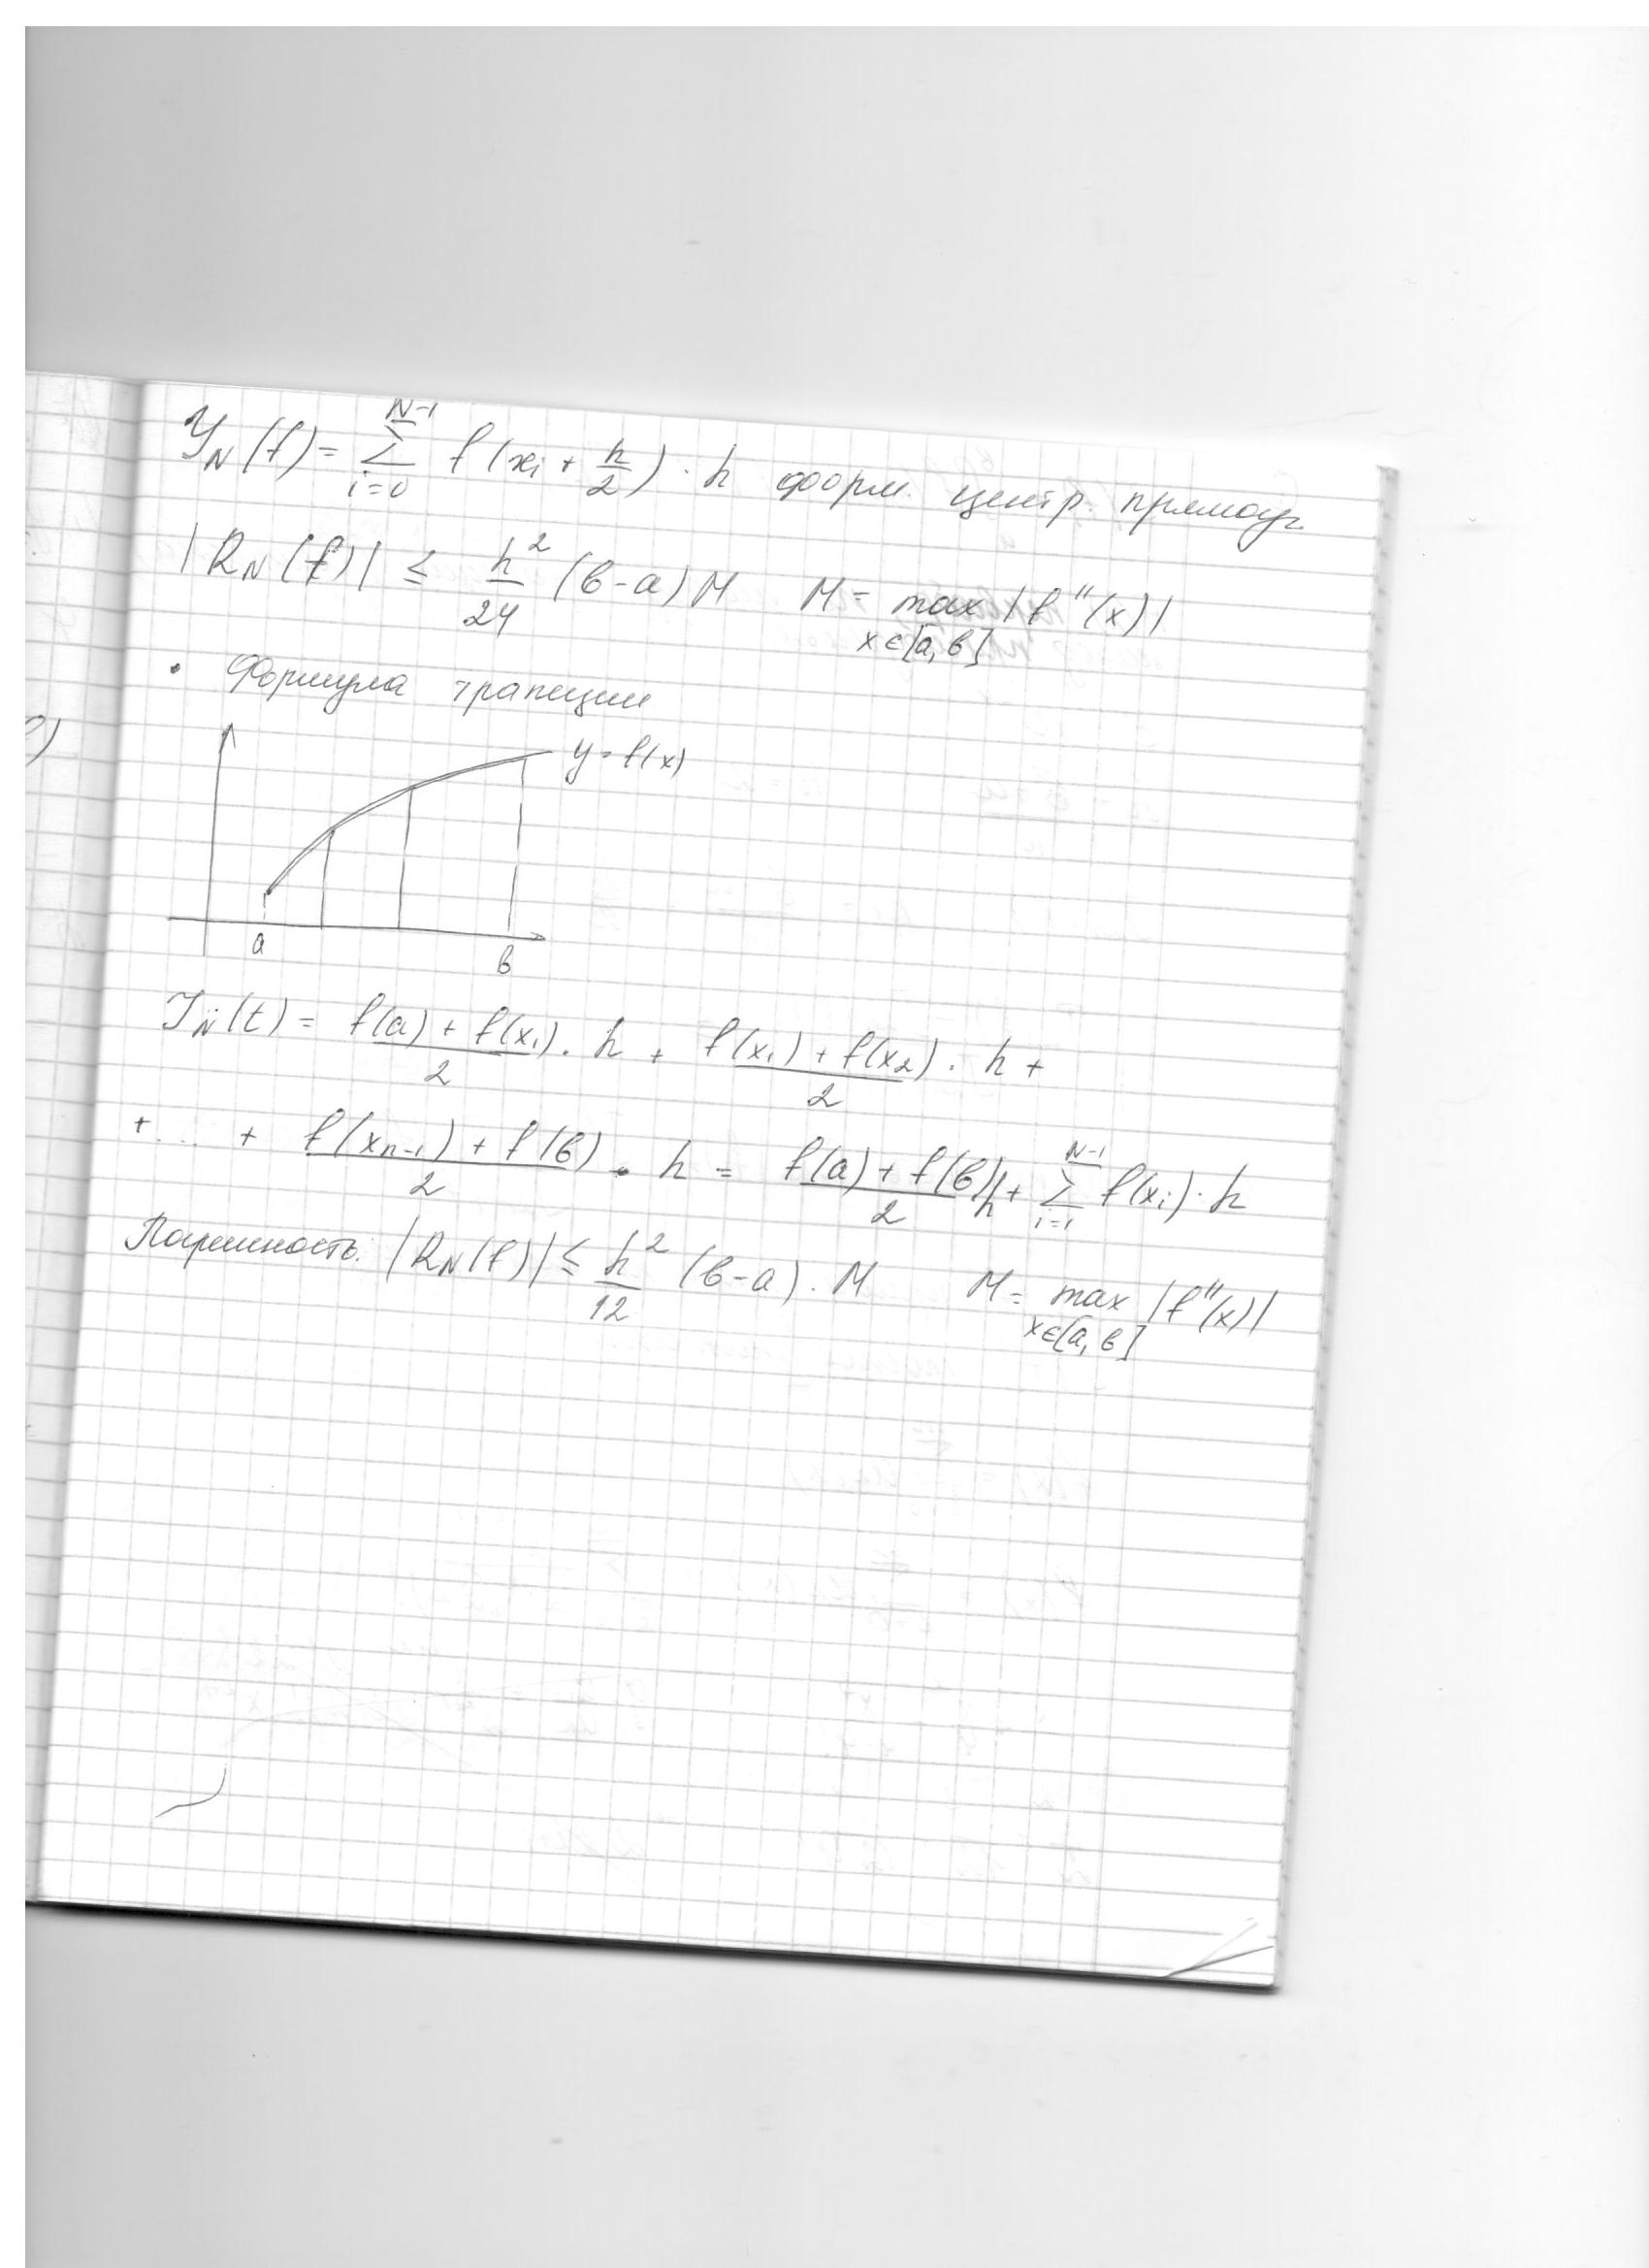 Y_N(f) = Σ_{i=0}^{N-1} f(x_i + h/2) · h форм. центр. прямоуг.
|R_N(f)| ≤ h²/24 (b-a) M M = max_{x∈[a,b]} |f''(x)|
• Формула трапеции
y = f(x)
a b
J_N(t) = (f(a) + f(x₁))/2 · h + (f(x₁) + f(x₂))/2 · h +
+ ... + (f(x_{n-1}) + f(b))/2 · h = (f(a) + f(b))/2 h + Σ_{i=1}^{N-1} f(x_i) · h
|R_N(f)| ≤ h²/12 (b-a) · M M = max_{x∈[a,b]} |f''(x)|